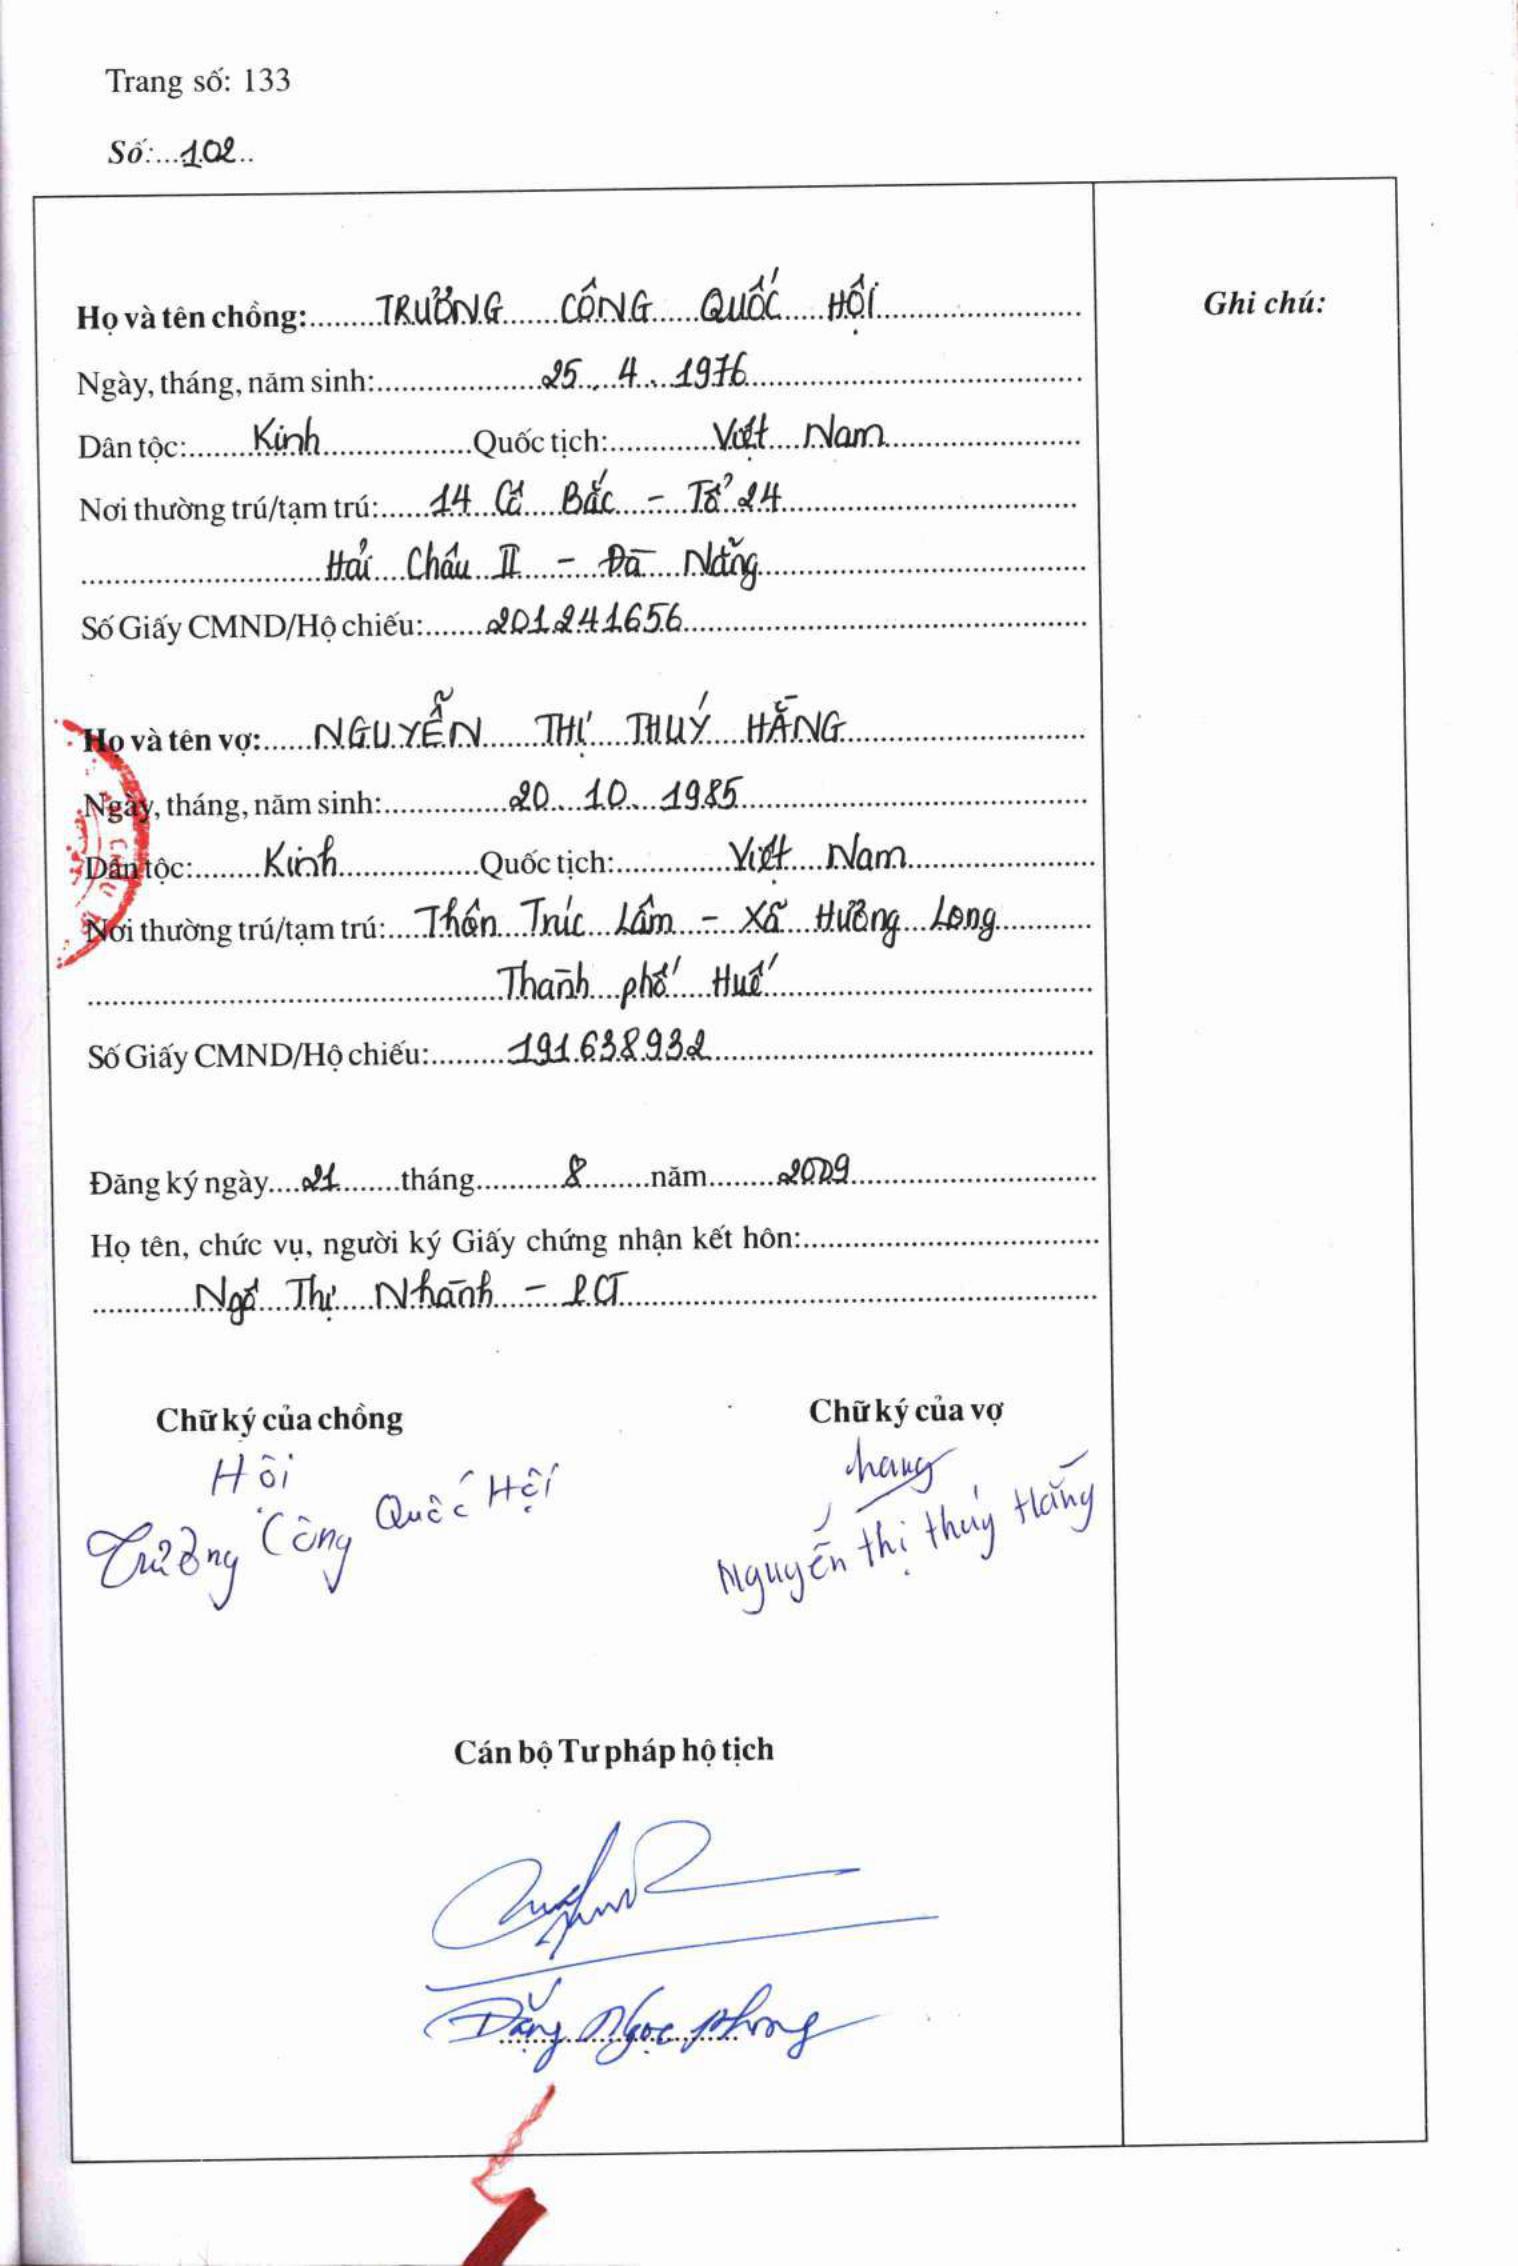 Trang số: 133
Số: 102
Họ và tên chồng: TRƯƠNG CÔNG QUỐC HỘI
Ghi chú:
Ngày, tháng, năm sinh: 25. 4. 1976
Dân tộc: Kinh Quốc tịch: Việt Nam
Nơi thường trú/tạm trú: 14 Cô Bắc - Tổ 24
Hải Châu II - Đà Nẵng
Số Giấy CMND/Hộ chiếu: 201241656
Họ và tên vợ: NGUYỄN THỊ THUÝ HẰNG
Ngày, tháng, năm sinh: 20. 10. 1985
Dân tộc: Kinh Quốc tịch: Việt Nam
Nơi thường trú/tạm trú: Thôn Trúc Lâm - Xã Hương Long
Thành phố Huế
Số Giấy CMND/Hộ chiếu: 191638932
Đăng ký ngày 21 tháng 8 năm 2009
Họ tên, chức vụ, người ký Giấy chứng nhận kết hôn:
Ngô Thị Nhành - PCT
Chữ ký của chồng Chữ ký của vợ
Hội
Trương Công Quốc Hội
Hang
Nguyễn thị thúy Hằng
Cán bộ Tư pháp hộ tịch
Đặng Ngọc Phong